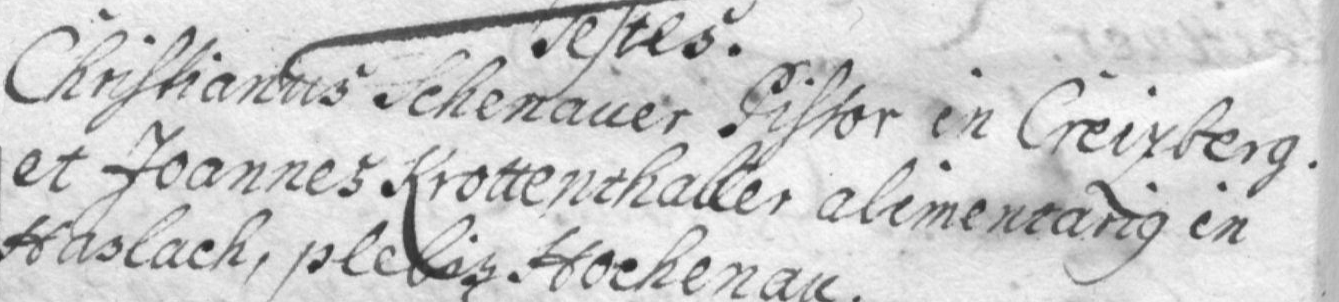 Testes.
Christianus Schenauer Pistor in Creizberg.
et Joannes Krottenthaller alimentarig in
Haslach, plebis Hochenau.